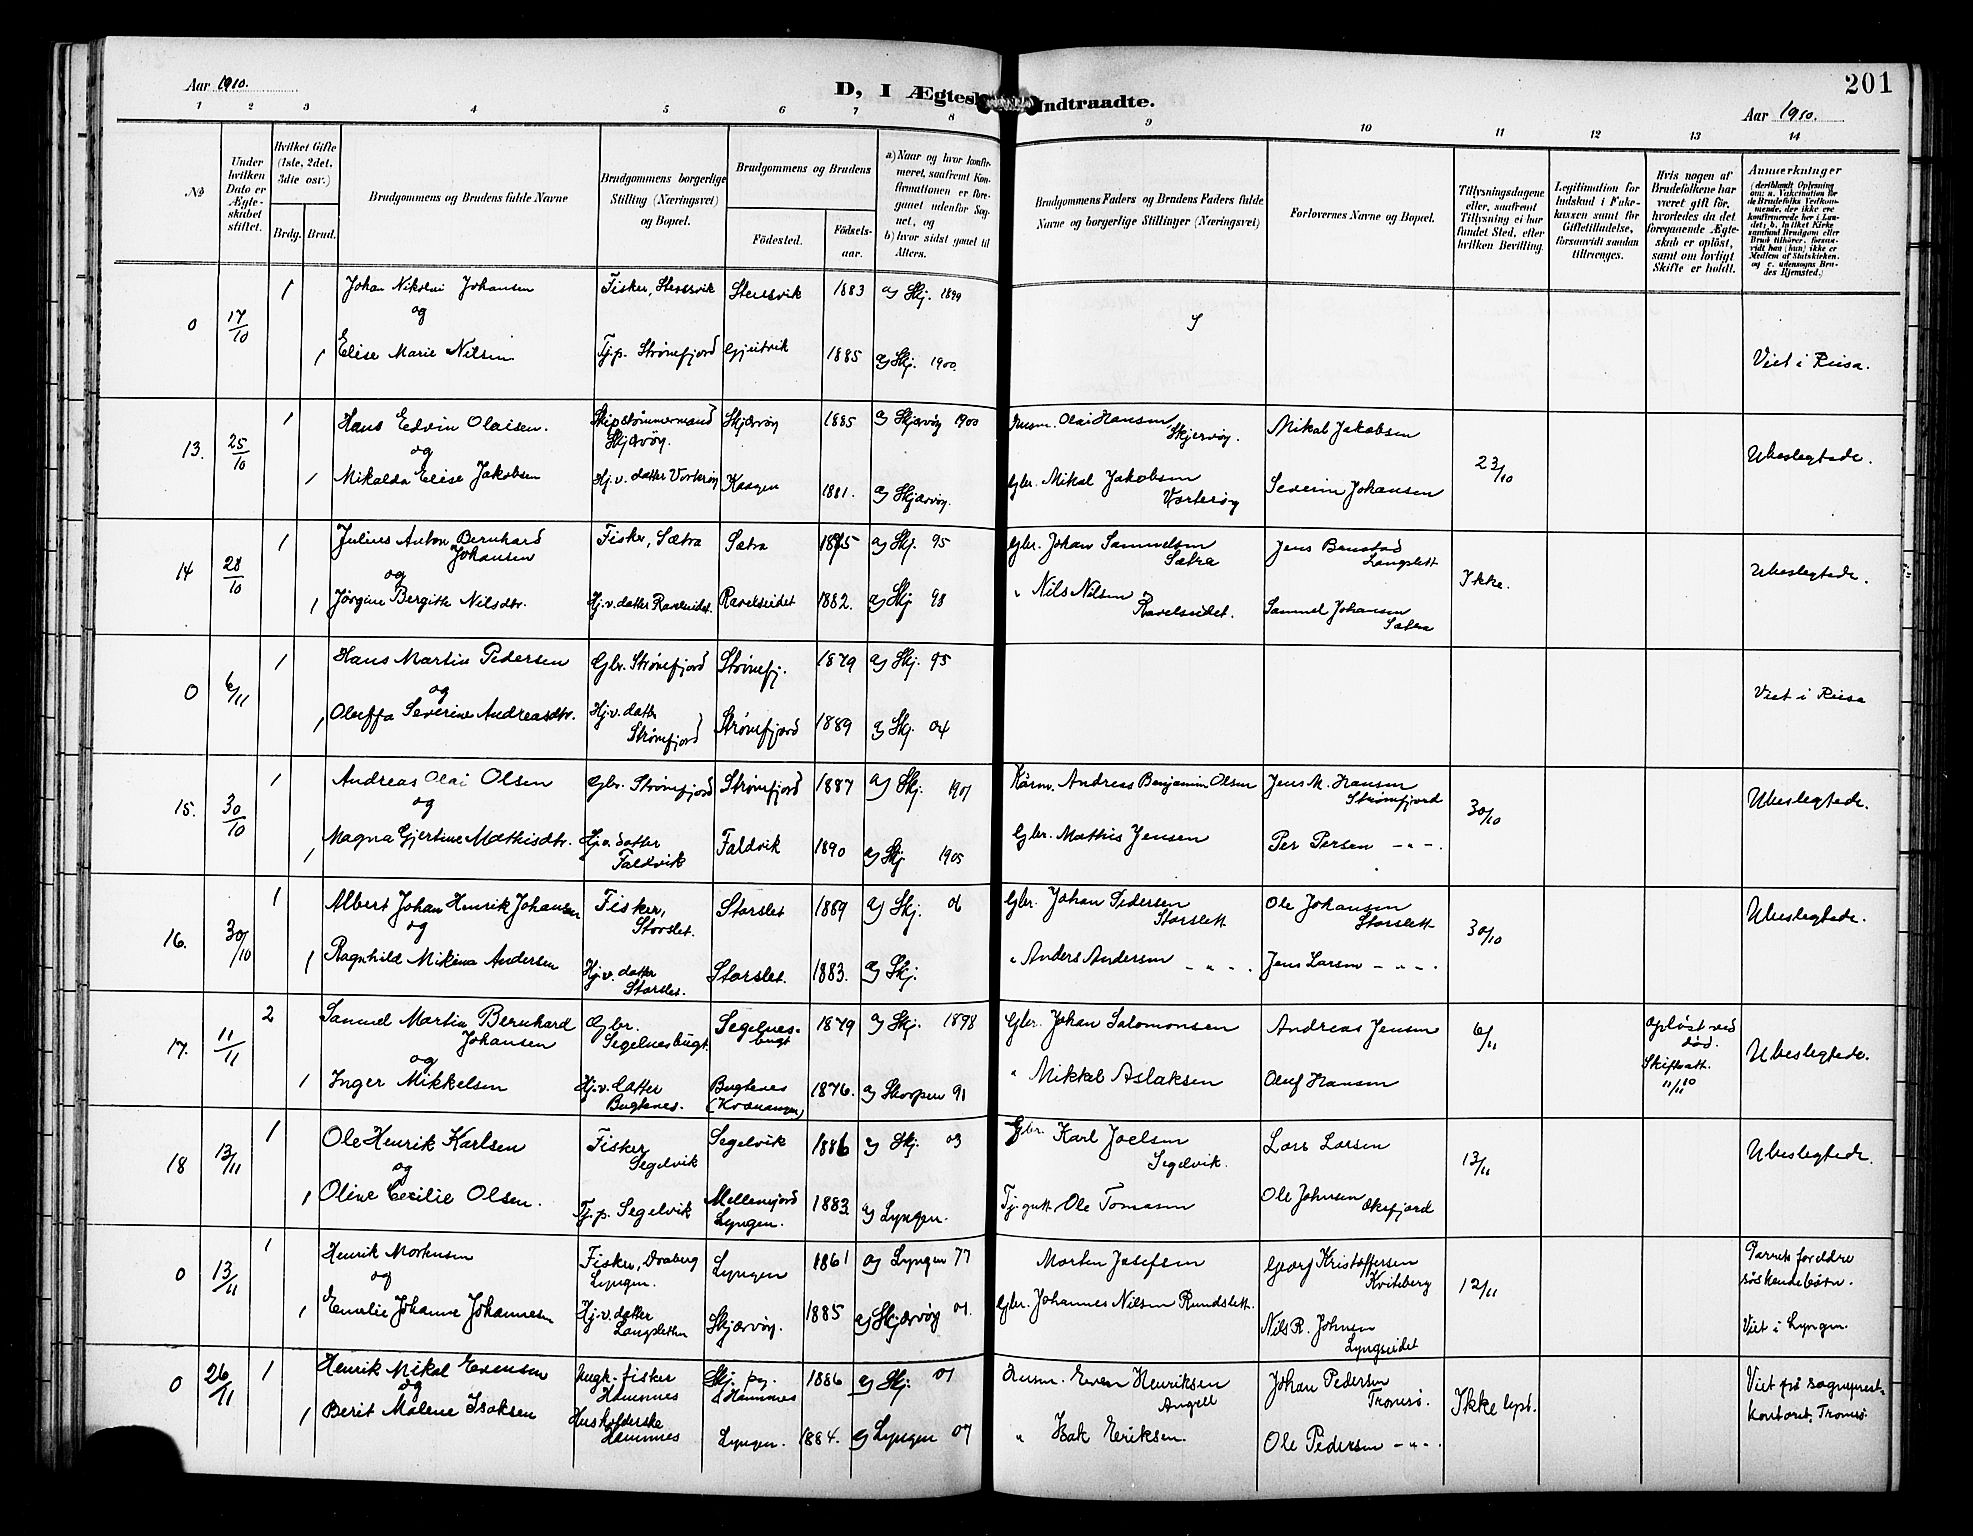 201
Aar 1910.
D, I Ægtes Indtraadte.
Aar 1910.
1 2 3 4 5 6 7 8 9 10 11 12 13 14
No
Under hvilken Dato er Ægteskabet stiftet.
Hvilket Gifte (1ste, 2det, 3die osv.)
Brdg. Brud.
Brudgommens og Brudens fulde Navne
Brudgommens borgerlige Stilling (Næringsvei) og Bopæl.
Brudgommens og Brudens
Födested.
Födsels-aar.
a) Naar og hvor konfirmeret, saafremt Konfirmationen er foregaaet udenfor Sognet, og
b) hvor sidst gaaet til Alters.
Brudgommens Faders og Brudens Faders fulde Navne og borgerlige Stillinger (Næringsvei)
Forlovernes Navne og Bopæl.
Tillysningsdagene eller, saafremt Tillysning ei har fundet Sted, efter hvilken Bevilling.
Legitimation for Indskud i Enkekassen samt for Giftetilladelse, forsaavidt saadan tiltrænges.
Hvis nogen af Brudefolkene har været gift för, hvorledes da det foregaaende Ægteskab er oplöst, samt om lovligt Skifte er holdt.
Anmerkninger
0 17/10 1 Johan Nikolai Johansen Fisker, Stensvik Stensvik 1883 a) Skj. 1899
og
1 Elise Marie Nilsen Tj.p. Strømfjord Gjeitvik 1885 a) Skj. 1900. Viet i Reisa.
13. 25/10 1 Hans Edvin Olaisen. Skipstømmermand Skjærvøy. Skjærvøy 1885 a) Skjærvøy 1900 Husm. Olai Hansen Skjervøy. Mikal Jakobsen 23/10 Ubeslegtede.
og
1 Mikalda Elise Jakobsen Hj.v. datter Vorterøy Kaagen 1881. a) Skjærvøy. Gbr. Mikal Jakobsen Vorterøy Severin Johansen
14 28/10 1 Julius Anton Bernhard Johansen Fisker, Sætra Sætra 1875 a) Skj. 95 Gbr. Johan Samuelsen Sætra Jens Benstad Langslett Ikke. Ubeslegtede.
og
1 Jørgine Bergitte Nilsdtr. Hj.v. datter Ravelseidet. Ravelseidet 1882. a) Skj 98 " Nils Nilsen Ravelseidet. Samuel Johansen Sætra
0 6/11 1 Hans Martin Pedersen Gbr. Strømfjord Strømfj. 1879 a) Skj. 95 Viet i Reisa
og
1 Oluffa Severine Andreasdtr. Hj.v. datter Strømfjord Strømfjord 1889 a) Skj. 04
15. 30/10 1 Andreas Olai Olsen Gbr. Strømfjord Strømfjord 1887 a) Skj. 1901 Kårm. Andreas Benjamin Olsen Jens M. Hansen Strømfjord 30/10 Ubeslegtede.
og
1 Magna Gjertine Mathisdtr. Hj.v. datter Faldvik Faldvik 1890 a) Skj 1905 Gbr. Mathis Jensen Per Persen - " - .
16. 30/10 1 Albert Johan Henrik Johansen Fisker, Storslet. Storslet 1889 a) Skj. 06 Gbr. Johan Pedersen Storslett Ole Johansen Storslett 30/10 Ubeslegtede.
og
1 Ragnhild Mikina Andersen Hj.v. datter Storslet. Storslet. 1883. a) Skj. " Anders Andersen - " - . Jens Larsen - " - .
17. 11/11 2 Samuel Martin Bernhard Johansen Gbr. Segelnesbugt. Segelnesbugt 1879 a) Skj. 1898 Gbr. Johan Salomonsen Andreas Jensen 6/11 opløst ved død. Skifteatt. 11/11 10 Ubeslegtede.
og
1 Inger Mikkelsen Hj.v. datter Bugtenes. Bugtenes (Kvænangen) 1876. a) Skorpen 91 " Mikkel Aslaksen Oluf Hansen
18 13/11 1 Ole Henrik Karlsen Fisker Segelvik Segelvik 1886 a) Skj. 03 Gbr. Karl Joelsen Segelvik. Lars Larsen 13/11 Ubeslegtede.
og
1 Oline Cecilie Olsen. Tj.p. Segelvik Mellemjord Lyngen. 1883. a) Lyngen. Tj.gutt Ole Tomasen Ole Johnsen Oksfjord
0 13/11 1 Henrik Mortensen Fisker, Draberg Lyngen. Lyngen 1861 a) Lyngen 77 Morten Josefsen Georg Kristoffersen Kviteberg 12/11 Parrets foreldre søskendebørn.
og
1 Emelie Johanne Johannesen Hj.v. datter Langsletten Skjærvøy. 1885 a) Skjærvøy 01. Gbr. Johannes Nilsen Rundslett. Nils R. Johnsen Lyngseidet Viet i Lyngen.
0 26/11 1 Henrik Mikal Evensen Ungk. fisker Hamnnes Skj. pg. Hamnnes 1886 a) Skj. 01 Husm. Even Henriksen Angell Johan Pedersen Tromsø. Ikke lyst. Viet på sogneprest-kontoret, Tromsø.
og
1 Berit Malene Isaksen Husholderske Hamnnes Lyngen. 1884. a) Lyngen 07 " Isak Eriksen. Ole Pedersen - " - .